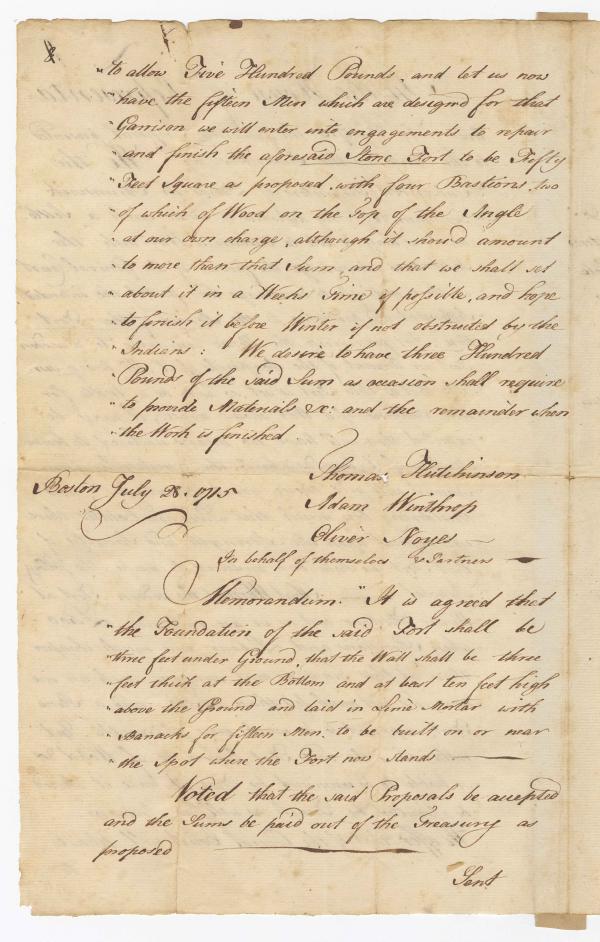 "to allow Five Hundred Pounds, and let us now
"have the fifteen Men which are design'd for that
"Garrison we will enter into engagements to repair
"and finish the aforesaid Stone Fort to be Fifty
"Feet Square as proposed, with four Bastions, two
"of which of Wood on the Top of the Angle
"at our own charge, although it shou'd amount
"to more than that Sum, and that we shall set
"about it in a Weeks Time if possible, and hope
"to finish it before Winter if not obstructed by the
"Indians: We desire to have three Hundred
"Pounds of the said Sum as occasion shall require
"to provide Materials &c: and the remainder when
"the Work is finished.
Thomas Hutchinson
Boston July 28. 1715
Adam Winthrop
Oliver Noyes
In behalf of themselves & Partners
Memorandum. "It is agreed that
"the Foundation of the said Fort shall be
"three feet under Ground, that the Wall shall be three
"feet thick at the Bottom and at least ten feet high
"above the Ground and laid in Lime Mortar with
"Barracks for fifteen Men, to be built on or near
"the Spot where the Fort now stands
Voted that the said Proposals be accepted
and the Sums be paid out of the Treasury as
proposed
Sent